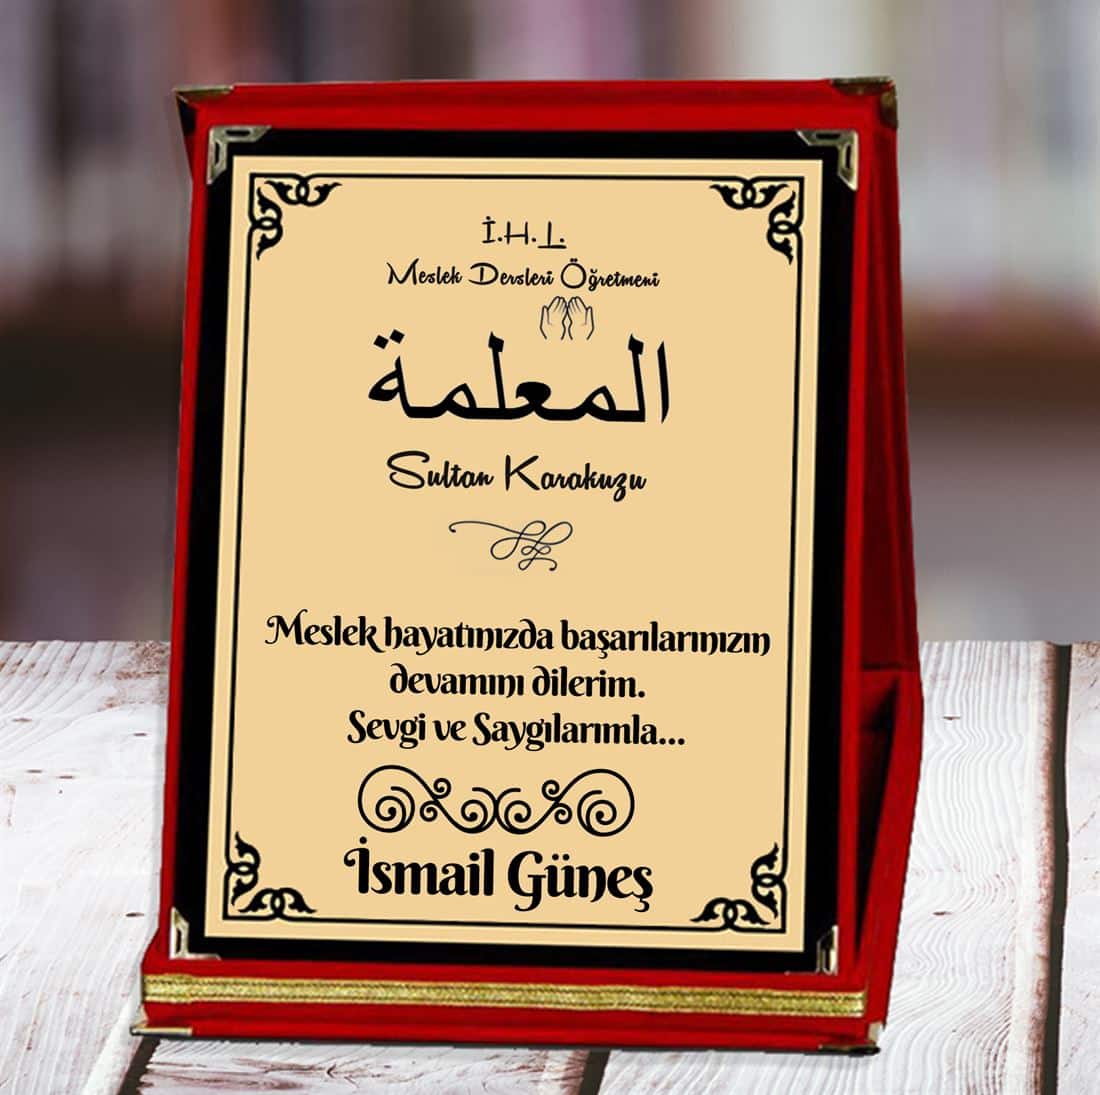 İ.H.L.
Meslek Dersleri Öğretmeni
المعلمة
Sultan Karakuzu
Meslek hayatınızda başarılarınızın
devamını dilerim.
Sevgi ve Saygılarımla...
İsmail Güneş